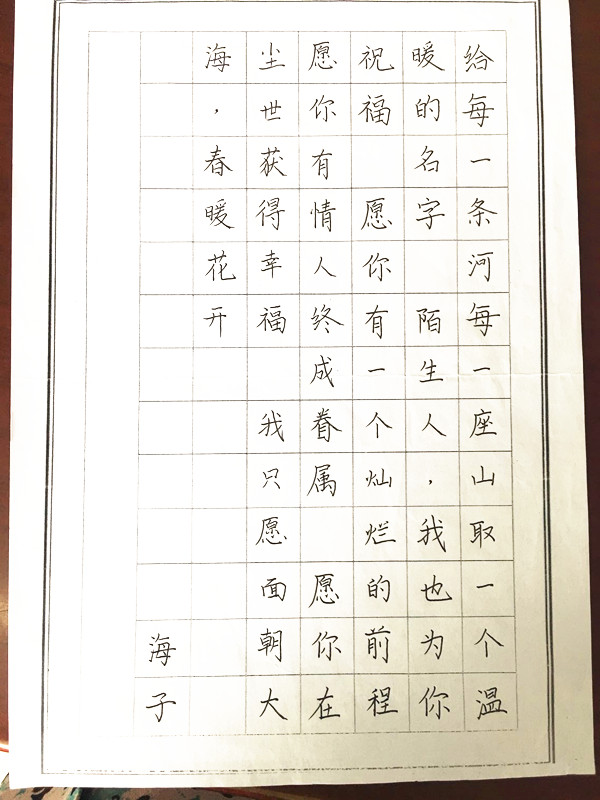 给每一条河每一座山取一个温
暖的名字 陌生人，我也为你
祝福 愿你有一个灿烂的前程
愿你有情人终成眷属 愿你在
尘世获得幸福 我只愿面朝大
海，春暖花开
海子